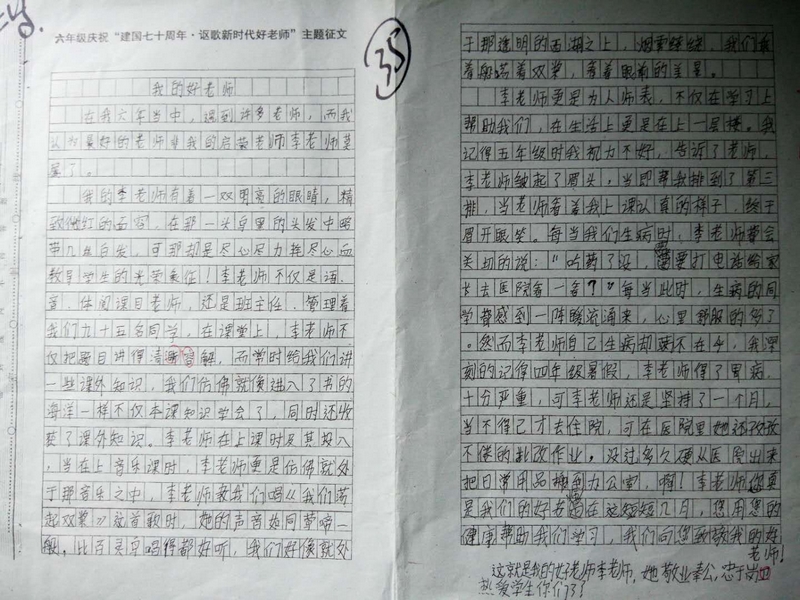 六年级庆祝“建国七十周年·讴歌新时代好老师”主题征文
35
我的好老师
在我六年当中，遇到许多老师，而我
认为最好的老师是我的启蒙老师李老师莫
属了。
我的李老师有着一双明亮的眼睛，精
致微红的面容，在那一头乌黑的头发中略
带几丝白发，可那却是尽心尽力耗尽心血
教导学生的光荣象征！李老师不仅是语、
音、体阅课目老师，还是班主任，管理着
我们九十五名同学，在课堂上，李老师不
仅把题目讲得清晰易解，而常时给我们讲
一些课外知识，我们仿佛就像进入了书的
海洋一样不仅本课知识学会了，同时还收
获了课外知识。李老师在上课时及其投入
，当在上音乐课时，李老师更是仿佛就处
于那音乐之中，李老师教我们唱《我们荡
起双桨》这首歌时，她的声音如同莺啼一
般，比百灵鸟唱得都好听，我们好像就处
于那透明的西湖之上，烟雾缭绕，我们
着船荡着双桨，看着眼前的美景。
李老师更是为人师表，不仅在学习上
帮助我们，在生活上更是在上一层楼。我
记得五年级时我视力不好，告诉了老师，
李老师皱起了眉头，当即帮我排到了第三
排，当老师看着我上课认真的样子，终于
眉开眼笑。每当我们生病时，李老师都会
关切的说：“吃药了没，需要打电话给家
长去医院看一看？”每当此时，生病的同
学都感到一阵暖流涌来，心里舒服的多了
。然而李老师自己生病却毫不在乎，我深
刻的记得四年级暑假，李老师得了胃病，
十分严重，可李老师还是坚持了一个月，
当不得已才去住院，可在医院里她还孜孜
不倦的批改作业，没过多久便从医院出来
把日常用品搬到办公室，啊！李老师您真
是我们的好老师在这短短几月，您用您的
健康帮助我们学习，我们向您致敬我的好
老师！
这就是我的好老师李老师，她敬业奉公，忠于岗
热爱学生